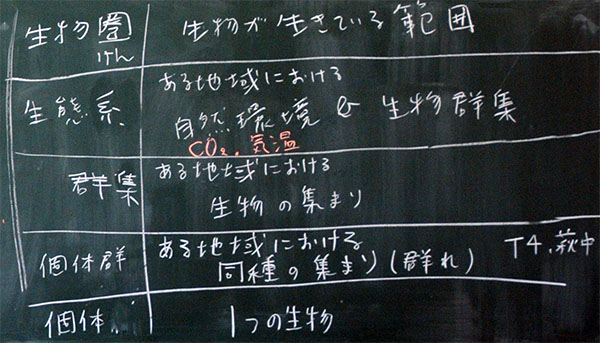 生物圏 生物が生きている範囲
けん
ある地域における
生態系 自然環境 & 生物群集
CO2、気温
群集 ある地域における
生物の集まり
個体群 ある地域における
同種の集まり(群れ) T4、萩中
個体 1つの生物